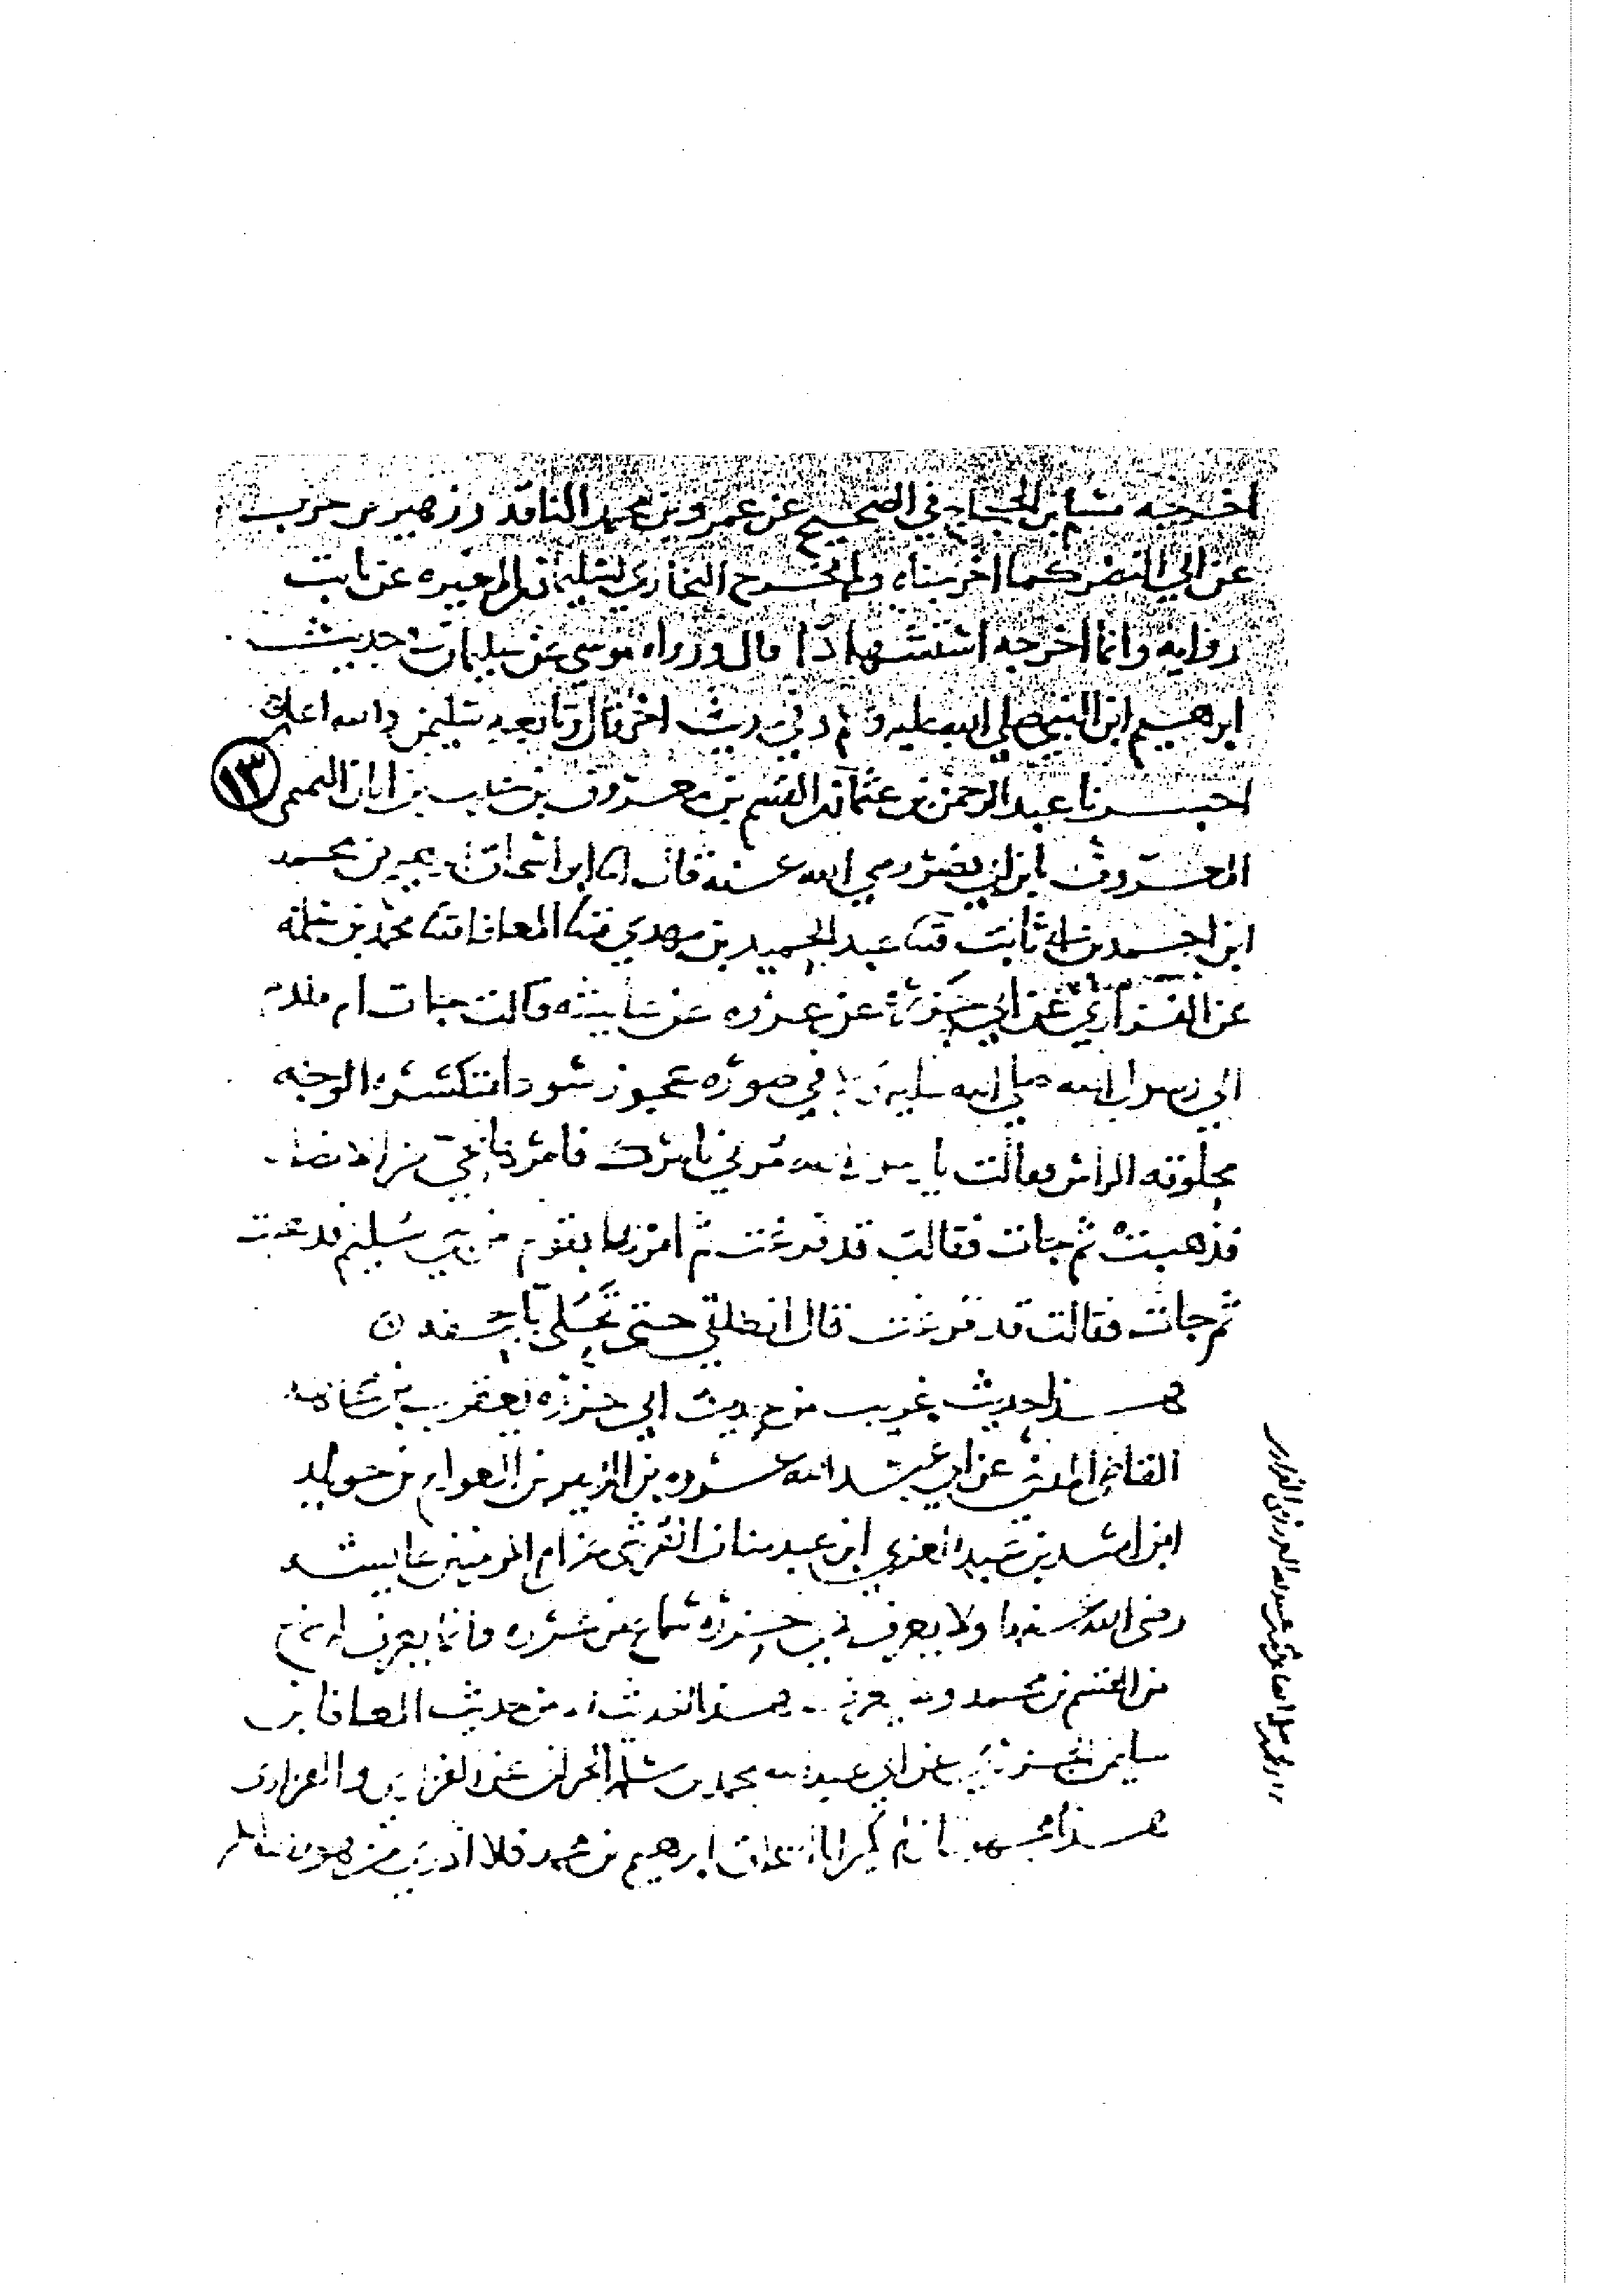 اخرجه مسلم بن الحجاج في الصحيح عن عمرو بن محمد الناقد وزهير بن حرب
عن ابي النضر كما اخرجناه ولم يخرج البخاري لسليمان بن المغيره عن ثابت
روايه وانما اخرجه استشهادا قال ورواه موسى عن سليمان حديث
ابرهيم ابن النبي صلى الله عليه وسلم وفي حديث اخر قال وتابعه سليمن والله اعلم
١٣
اخبرنا عبد الرحمن بن عثمان بن القسم بن معروف بن حبيب بن ابان التميمي
المعروف بابن ابي نصر رضي الله عنه قال ابنا ابو اسحاق ابرهيم بن محمد
ابن احمد بن ابي ثابت ثنا عبد الحميد بن مهدي ثنا المعافا ثنا محمد بن سلمه
عن الفزاري عن ابي حزرة عن عروه عن عايشه قالت جات ام ملدم
الى رسول الله صلى الله عليه وسلم في صوره عجوز سودا الوجه
الراس فقالت يا رسول الله مرني بامرك فامرها بحي من الانصار
فذهبت ثم جات فقالت قد فرغت ثم امرها بقوم من بني سليم فذهبت
ثم جات فقالت قد فرغت قال انطلقي حتى
هذا حديث غريب من حديث ابي حزره يعقوب بن مجاهد
القاضي المدني عن ابي عبد الله عروه بن الزبير بن العوام بن خويلد
ابن اسد بن عبد العزى ابن عبد مناف القرشي عن ام المومنين عايشه
رضي الله عنها ولا يعرف لابي حزره سماع من عروه وانما يعرف
من القسم بن محمد هذا الحديث من حديث المعافا بن
سليمن عن ابي عبد الله محمد بن سلمه الحراني عن الفزاري والفزاري
هذا مجهول فان لم يكن ابا اسحاق ابرهيم بن محمد فلا ادري من هو